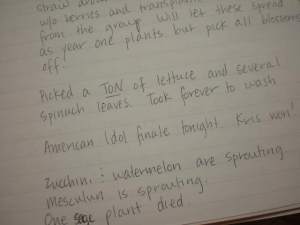 straw around
w/o berries and transplan
from the group. Will let these spread
as year one plants but pick all blossoms
off.
Picked a TON of lettuce and several
spinach leaves. Took forever to wash
American Idol finale tonight. Kris won!
Zucchini & watermelon are sprouting.
Mesculun is sprouting.
One sage plant died